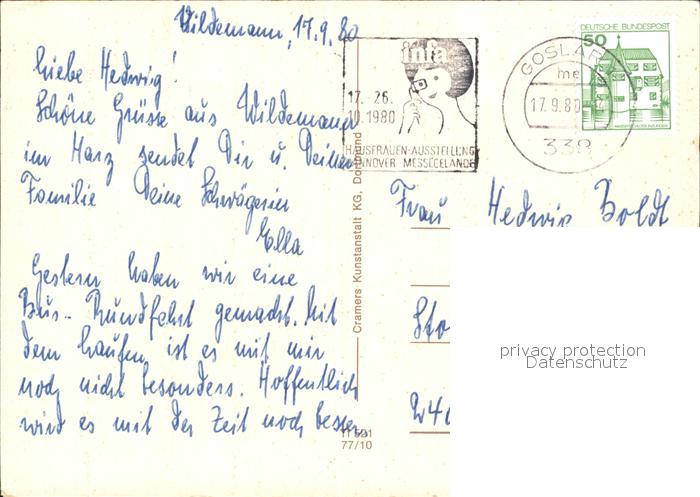 Wildemann, 17.9.80
Liebe Hedwig!
Schöne Grüsse aus Wildemann
im Harz sendet Dir u. Deiner
Familie Deine Schwägerin
Ella
Gestern haben wir eine
Bus-Rundfahrt gemacht. Mit
dem Laufen, ist es mit mir
noch nicht besonders. Hoffentlich
wird es mit der Zeit noch besser.
infa
17. 26.
10.1980
HAUSFRAUEN-AUSSTELLUNG
HANNOVER MESSEGELÄNDE
GOSLAR
me
17.9.80
338
DEUTSCHE BUNDESPOST
50
Cramers Kunstanstalt KG, Dortmund
Frau Hedwig Boldt
Sto
privacy protection
Datenschutz
240
77/10